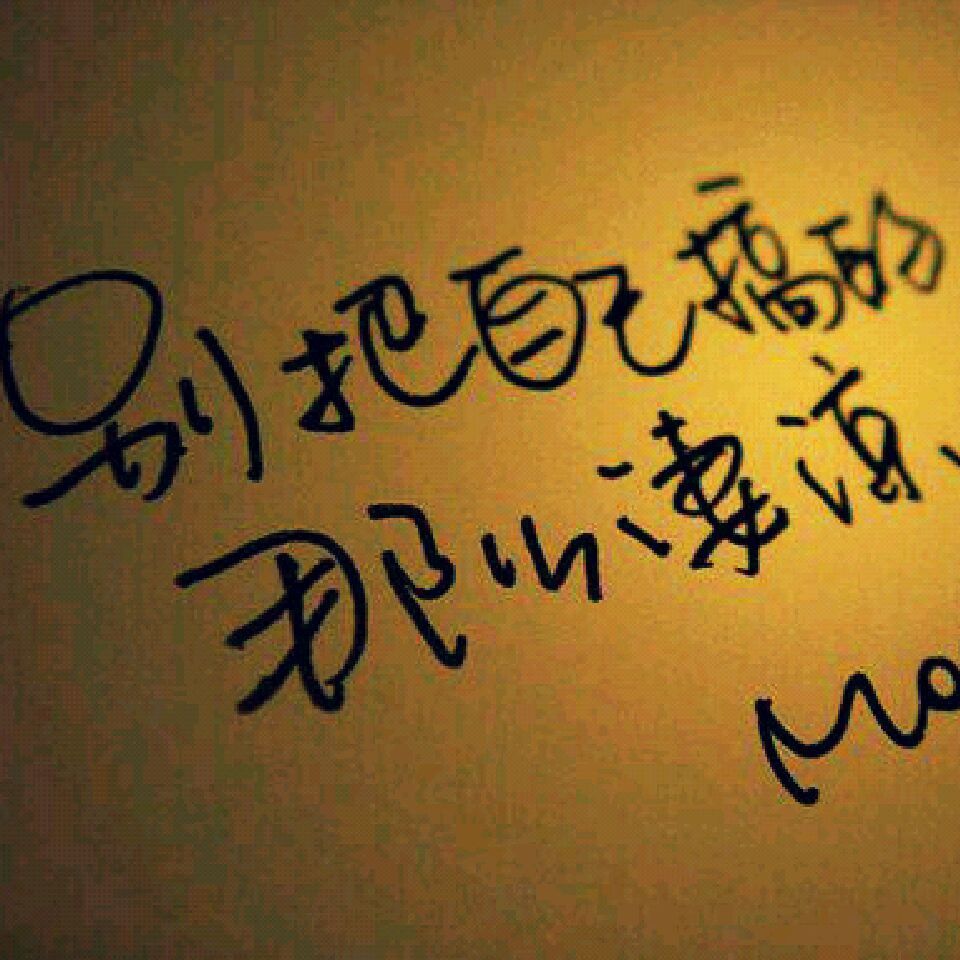 别把自己搞的
那么凄凉、
Mo